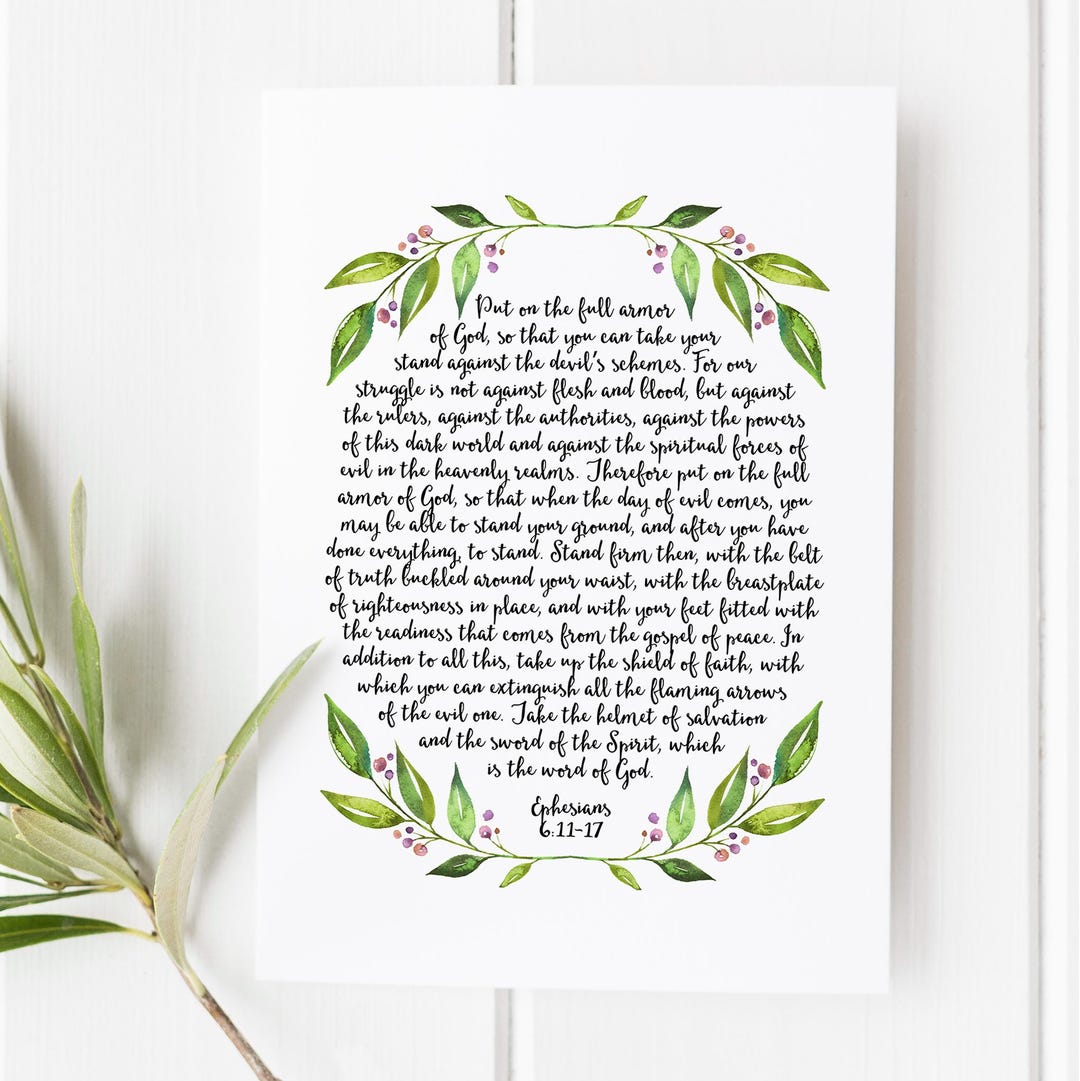 Put on the full armor
of God, so that you can take your
stand against the devil's schemes. For our
struggle is not against flesh and blood, but against
the rulers, against the authorities, against the powers
of this dark world and against the spiritual forces of
evil in the heavenly realms. Therefore put on the full
armor of God, so that when the day of evil comes, you
may be able to stand your ground, and after you have
done everything, to stand. Stand firm then, with the belt
of truth buckled around your waist, with the breastplate
of righteousness in place, and with your feet fitted with
the readiness that comes from the gospel of peace. In
addition to all this, take up the shield of faith, with
which you can extinguish all the flaming arrows
of the evil one. Take the helmet of salvation
and the sword of the Spirit, which
is the word of God.
Ephesians
6:11-17